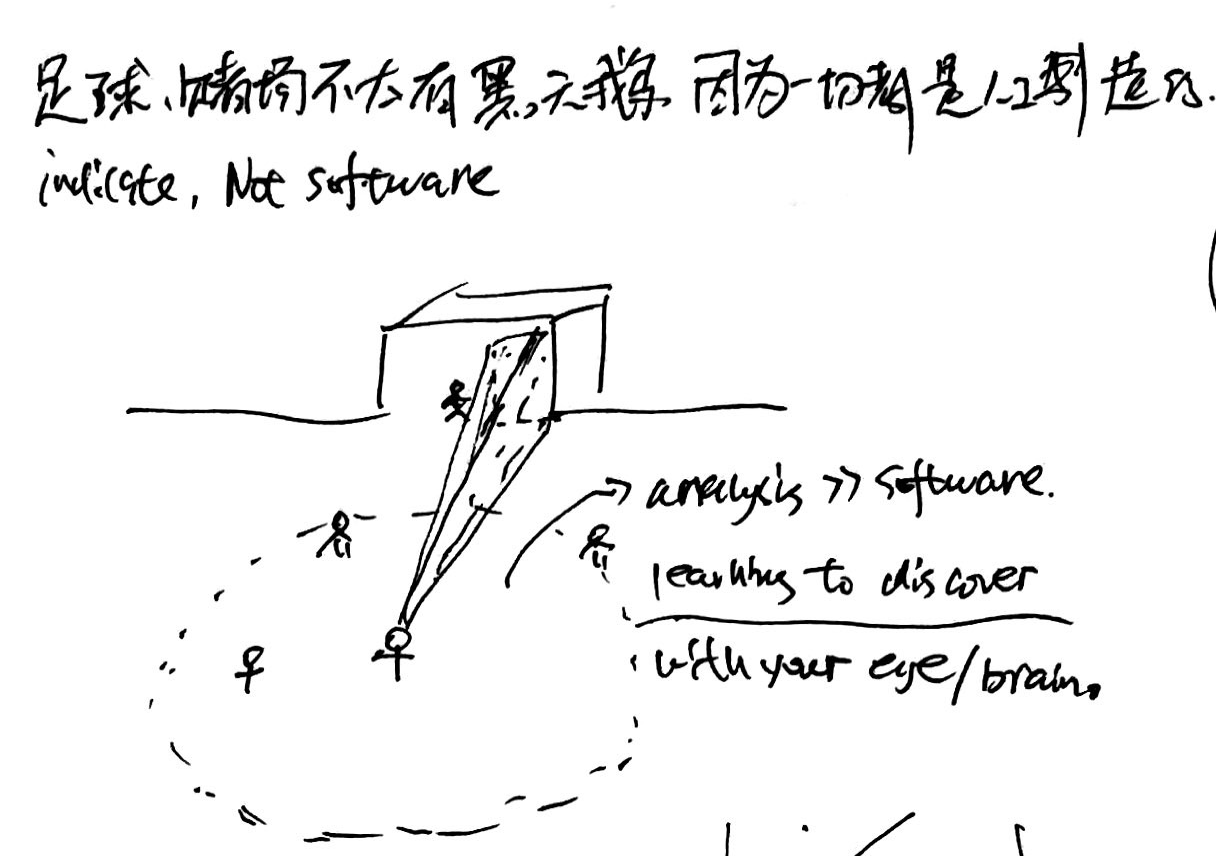 足球、赌场不太有黑天鹅 因为一切都是人工制造的.
indicate, Not software
analysis >> software.
learning to discover
with your eye/brain.